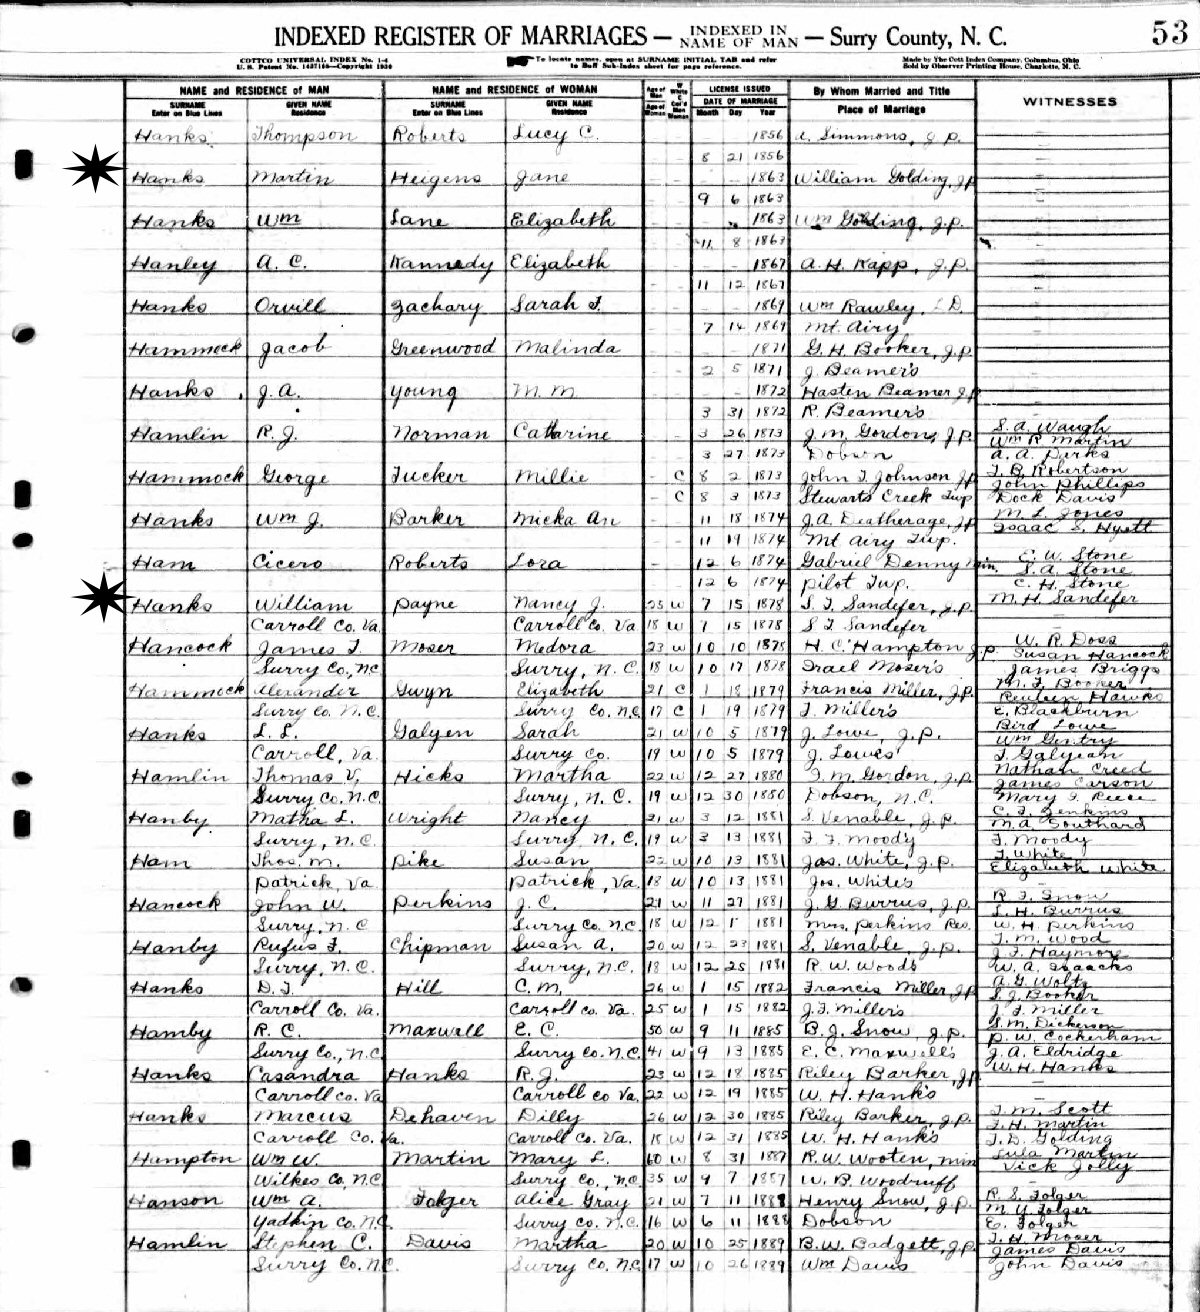 INDEXED REGISTER OF MARRIAGES — INDEXED IN NAME OF MAN — Surry County, N. C. 53
COTTCO UNIVERSAL INDEX No. 1-4
U. S. Patent No. 1427166—Copyright 1930
To locate names, open at SURNAME INITIAL TAB and refer
to Buff Sub-Index sheet for page reference.
Made by The Cott Index Company, Columbus, Ohio
Sold by Observer Printing House, Charlotte, N. C.
NAME and RESIDENCE OF MAN NAME and RESIDENCE OF WOMAN LICENSE ISSUED By Whom Married and Title WITNESSES
SURNAME GIVEN NAME SURNAME GIVEN NAME Age of Man W White C Col'd DATE OF MARRIAGE Place of Marriage
Enter on Blue Lines Residence Enter on Blue Lines Residence Age of Woman Man Woman Month Day Year
Hanks Thompson Roberts Lucy C. - - - - 1856 A. Simmons, J.P.
8 21 1856
Hanks Martin Heigens Jane - - - - 1863 William Golding, J.P.
9 6 1863
Hanks Wm Lane Elizabeth - - - 1863 Wm Golding, J.P.
11 8 1863
Hanley A. C. Kannedy Elizabeth - - - - 1867 A. H. Kapp, J.P.
11 12 1867
Hanks Orvill Zachary Sarah F. - - - - 1869 Wm Rawley, D.
7 14 1869 Mt. Airy
Hammock Jacob Greenwood Malinda - - - - 1871 G. H. Booker, J.P.
2 5 1871 J. Beamer's
Hanks J. A. Young M. M. - - 1872 Hasten Beamer J.P.
3 31 1872 R. Beamer's
Hamlin R. J. Norman Catharine - - 3 26 1873 J. M. Gordon, J.P. S. A. Waugh
Wm R Martin
3 27 1873 Dobson A. A. Dirks
Hammock George Tucker Millie - C 8 2 1873 John T. Johnson J.P. T. B. Robertson
John Phillips
- C 8 3 1873 Stewarts Creek Twp Dock Davis
Hanks Wm J. Barker Micka An - - 11 18 1874 J. A. Deatherage, J.P. M. L. Jones
Isaac S. Hyett
- - 11 19 1874 Mt Airy Twp.
Ham Cicero Roberts Lora - - 12 6 1874 Gabriel Denny Min. E. W. Stone
S. A. Stone
12 6 1874 Pilot Twp. C. H. Stone
Hanks William Payne Nancy J. 25 W 7 15 1878 S. T. Sandefer, J.P. M. H. Sandefer
Carroll Co. Va. Carroll Co. Va 18 W 7 15 1878 S T Sandefer
Hancock James T. Moser Medora 23 W 10 10 1878 H. C. Hampton J.P. W. R. Doss
Susan Hancock
Surry Co., N.C. Surry, N. C. 18 W 10 17 1878 Israel Moser's James Briggs
Hammock Alexander Gwyn Elizabeth 21 C 1 18 1879 Francis Miller, J.P. M. F. Booker
Reuben Hawks
Surry Co. N.C. Surry Co. N.C. 17 C 1 19 1879 F. Miller's E. Blackburn
Hanks L. L. Galyen Sarah 21 W 10 5 1879 J. Lowe, J.P. Bird Lowe
Wm Gentry
Carroll, Va. Surry Co. 19 W 10 5 1879 J. Lowes' F. Galyean
Hamlin Thomas V, Hicks Martha 22 W 12 27 1880 F. M. Gordon, J.P. Nathan Creed
James Carson
Surry Co. N.C. Surry, N. C. 19 W 12 30 1880 Dobson, N.C. Mary F. Reece
Hanby Matha L. Wright Nancy 21 W 3 12 1881 S. Venable, J.P. C. F. Jenkins
M. A. Southard
Surry, N. C. Surry, N. C. 19 W 3 13 1881 F. F. Moody F. Moody
Ham Thos. M. Pike Susan 22 W 10 13 1881 Jas. White, J.P. F. White
Elizabeth White
Patrick, Va. Patrick, Va. 18 W 10 13 1881 Jos. White's
Hancock John W. Perkins J. C. 21 W 11 27 1881 J. G. Burrus, J.P. R. F. Snow
L. H. Burrus
Surry, N. C Surry Co. N.C. 18 W 12 1 1881 Mrs. Perkins Res. W. H. Perkins
Hanby Rufus F. Chipman Susan A. 20 W 12 23 1881 S. Venable, J.P. T. M. Wood
J. F. Haymore
Surry, N. C. Surry, N.C. 18 W 12 25 1881 R. W. Woods W. A. Isaacks
Hanks D. F. Hill C. M. 26 W 1 15 1882 Francis Miller J.P. A. G. Woltz
S. J. Booker
Carroll Co. Va. Carroll Co. Va. 25 W 1 15 1882 J. F. Miller's J. F. Miller
Hamby R. C. Maxwell E. C. 50 W 9 11 1885 B. J. Snow, J.P. S. M. Dickerson
D. W. Cockerham
Surry Co., N.C. Surry Co. N.C. 41 W 9 13 1885 E. C. Maxwell's J. A. Eldridge
Hanks Casandra Hanks R. J. 23 W 12 18 1885 Riley Barker, J.P. W. H. Hanks
Carroll Co. Va Carroll Co Va. 22 W 12 19 1885 W. H. Hank's
Hanks Marcus Dehaven Dilly 26 W 12 30 1885 Riley Barker, J.P. T. M. Scott
F. H. Martin
Carroll Co. Va. Carroll Co. Va. 18 W 12 31 1885 W. H. Hank's T. D. Golding
Hampton Wm W. Martin Mary L. 60 W 8 31 1887 R. W. Wooten, Min Lula Martin
Vick Jolly
Wilkes Co, N.C Surry Co., N.C 35 W 9 7 1887 W. B. Woodruff
Hanson Wm A. Folger Alice Gray 21 W 7 11 1888 Henry Snow, J.P. R. S. Folger
M. Y. Folger
Yadkin Co. N.C. Surry Co. N.C. 16 W 6 11 1888 Dobson E. Folger
Hamlin Stephen C. Davis Martha 20 W 10 25 1889 B. W. Badgett, J.P. F. H. Moser
James Davis
Surry Co. N.C. Surry Co. N.C. 17 W 10 26 1889 Wm Davis John Davis